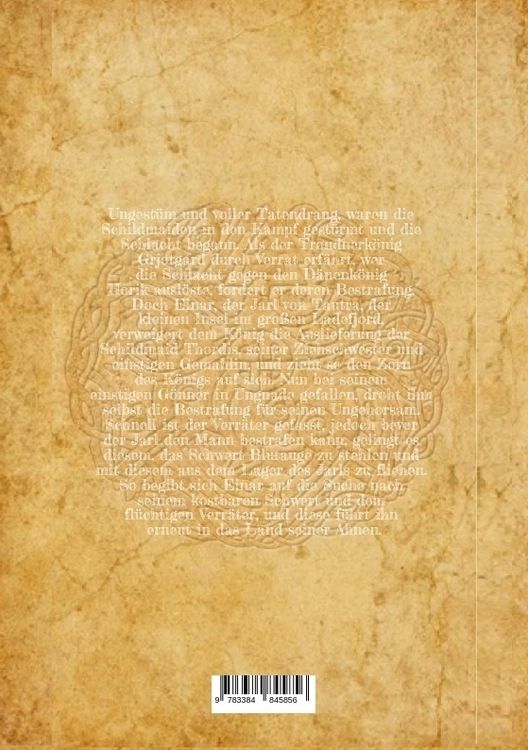 Ungestüm und voller Tatendrang, waren die
Schildmaiden in den Kampf gestürmt und die
Schlacht begann. Als der Trandnerkönig
Grjotgard durch Verrat erfährt, wer
die Schlacht gegen den Dänenkönig
Hörik auslöste, fordert er deren Bestrafung.
Doch Einar, der Jarl von Tautra, der
kleinen Insel im großen Ladefjord,
verweigert dem König die Auslieferung der
Schildmaid Thordis, seiner Ziehschwester und
einstigen Gemahlin, und zieht so den Zorn
des Königs auf sich. Nun bei seinem
einstigen Gönner in Ungnade gefallen, droht ihm
selbst die Bestrafung für seinen Ungehorsam.
Schnell ist der Verräter gefasst, jedoch bevor
der Jarl den Mann bestrafen kann, gelingt es
diesem, das Schwert Blutauge zu stehlen und
mit diesem aus dem Lager des Jarls zu fliehen.
So begibt sich Einar auf die Suche nach
seinem kostbaren Schwert und dem
flüchtigen Verräter, und diese führt ihn
erneut in das Land seiner Ahnen.
9 783384 845856